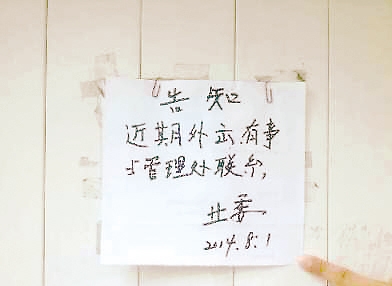 告知
近期外出,有事
与管理处联系,
业委
2014.8.1